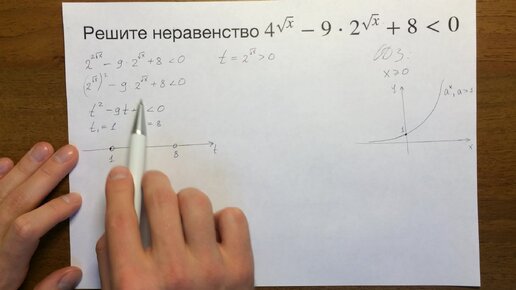 Решите неравенство 4^√x − 9 · 2^√x + 8 < 0
2^2√x − 9 · 2^√x + 8 < 0 t = 2^√x > 0
(2^√x)^2 − 9 2^√x + 8 < 0
t^2 − 9t + < 0
t₁ = 1 = 8
1 8 t
ОДЗ:
x ≥ 0
y
a^x, a>1
1
x